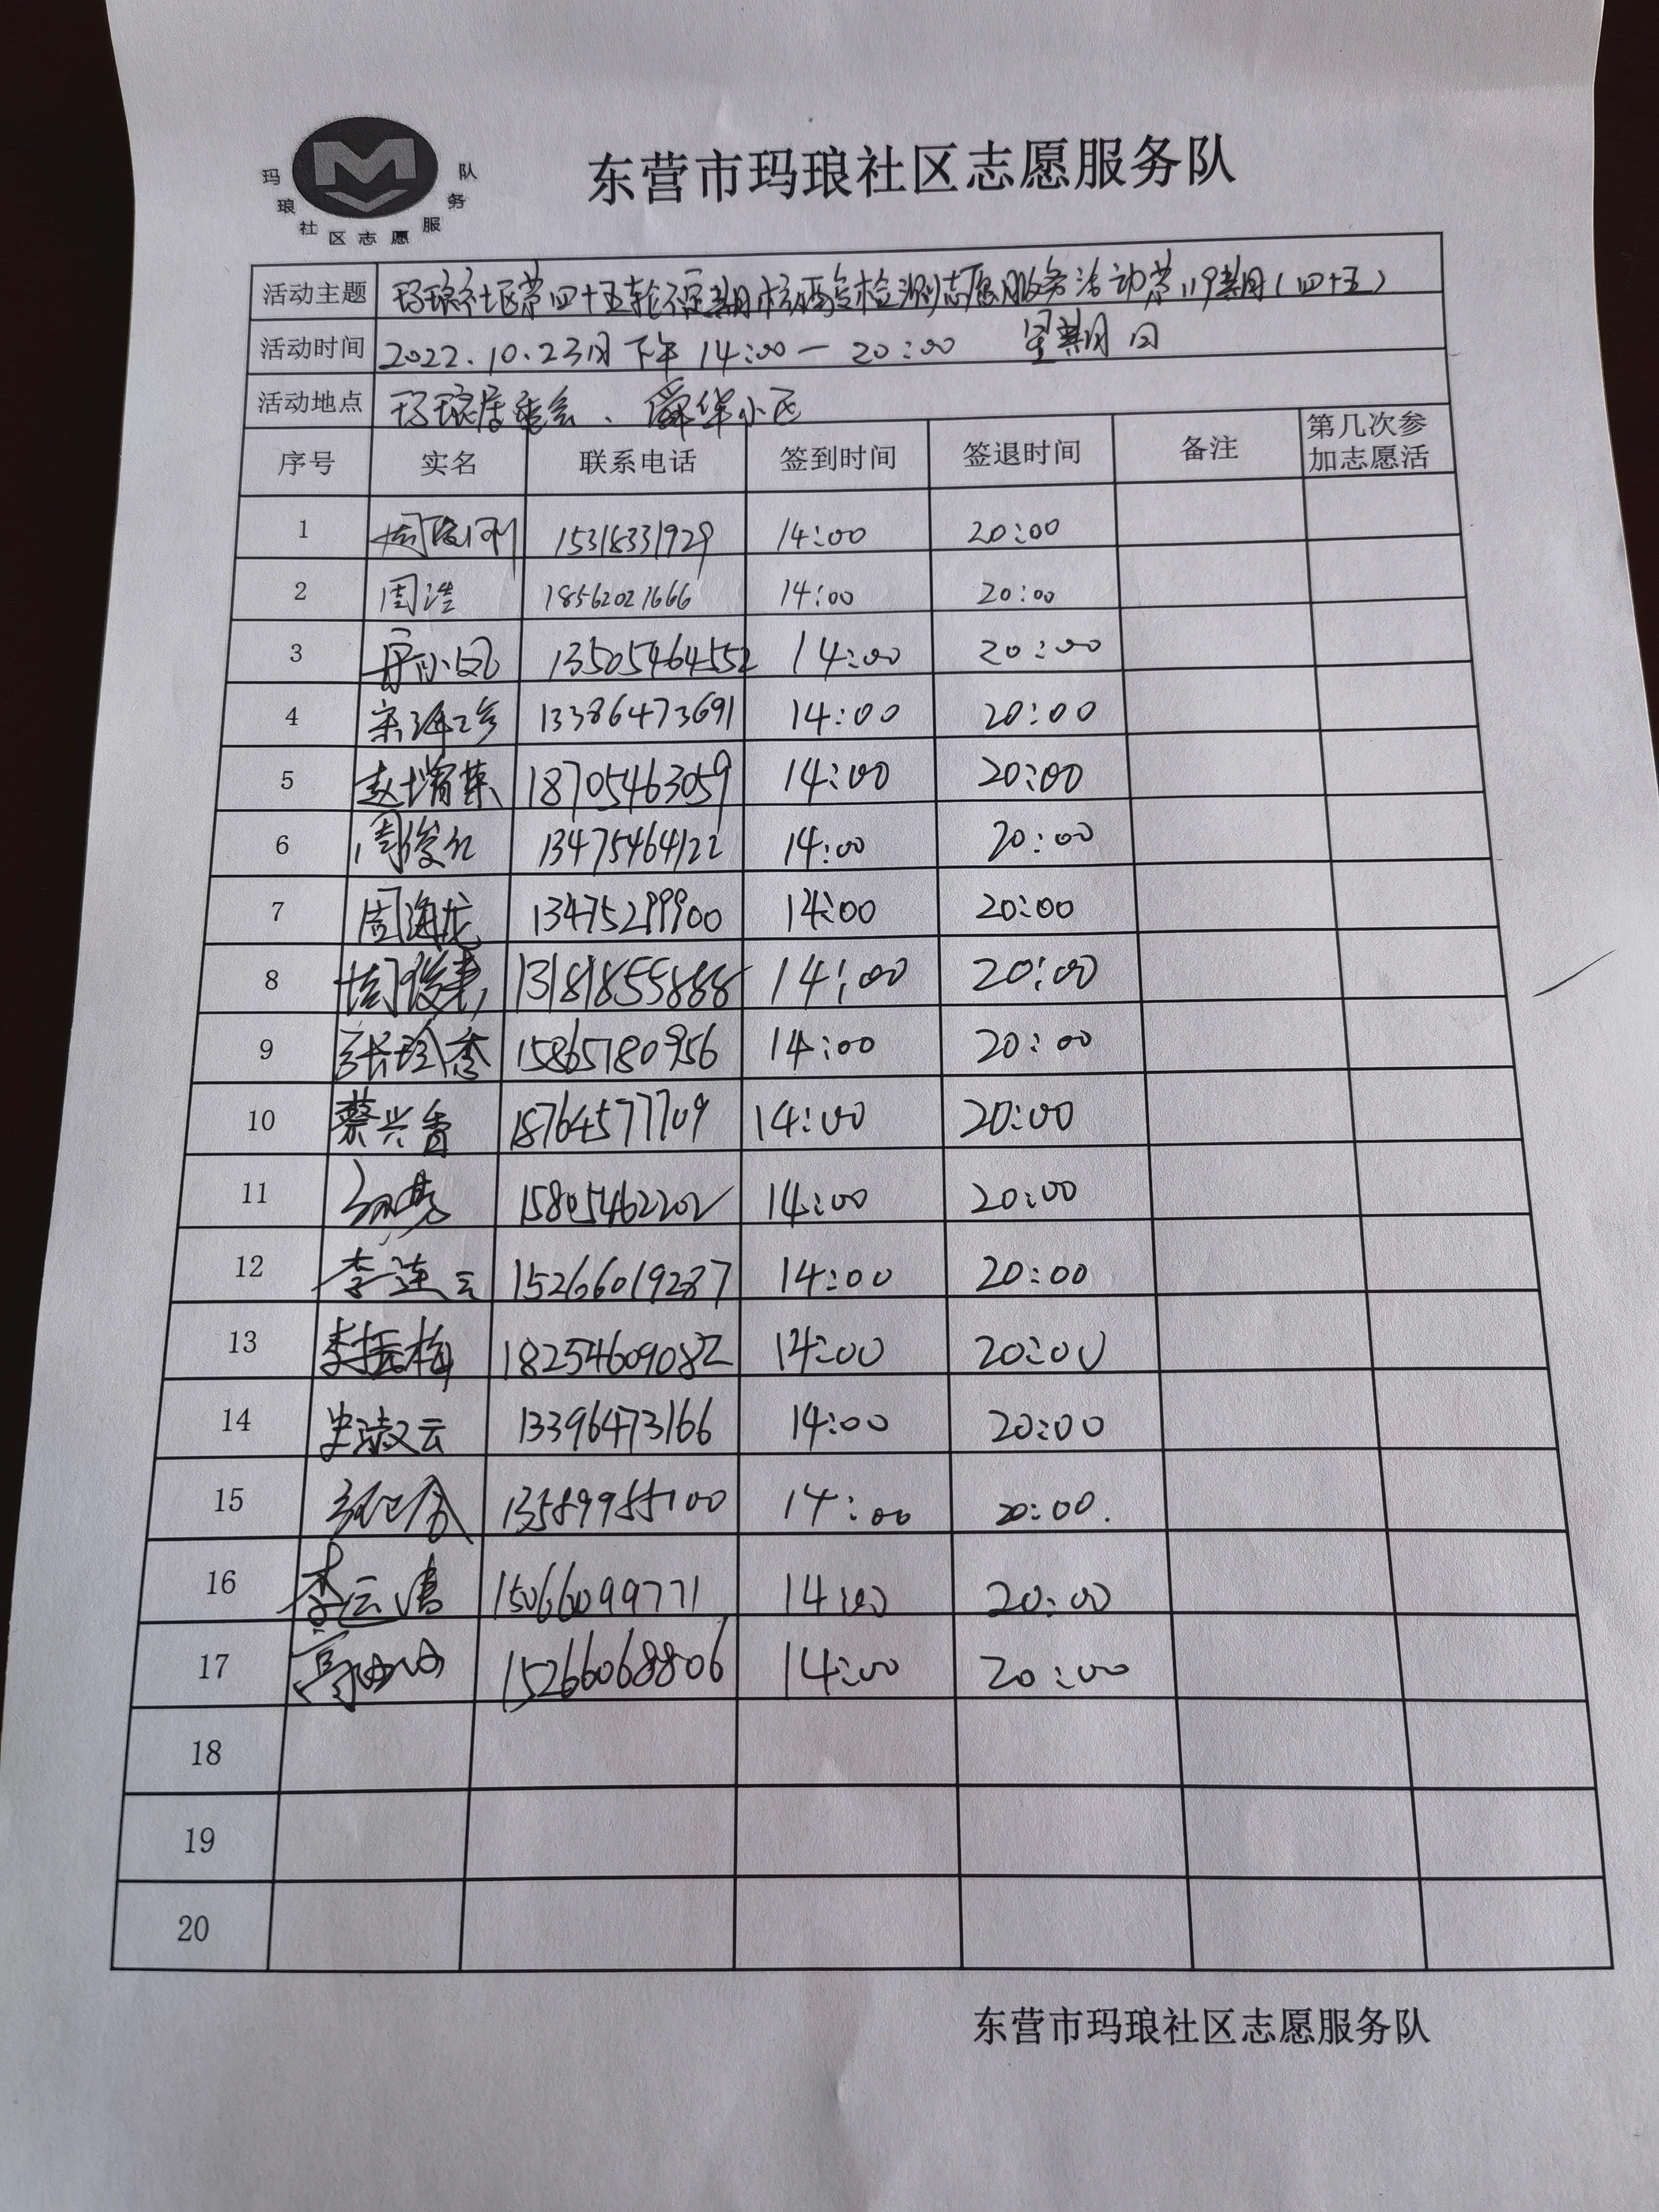 玛琅社区志愿服务队
东营市玛琅社区志愿服务队
活动主题 玛琅社区第四十五轮不定期核酸检测志愿服务活动第119期(四十五)
活动时间 2022.10.23日下午14:00—20:00 星期日
活动地点 玛琅居委会、舜华小区
序号 实名 联系电话 签到时间 签退时间 备注 第几次参
加志愿活
1 15318331929 14:00 20:00
2 周浩 18562021666 14:00 20:00
3 13505464552 14:00 20:00
4 13386473691 14:00 20:00
5 18705463059 14:00 20:00
6 周俊红 13475464122 14:00 20:00
7 周海龙 13475299900 14:00 20:00
8 13181855888 14:00 20:00
9 张珍香 15865180956 14:00 20:00
10 蔡兴香 18764577709 14:00 20:00
11 15805462202 14:00 20:00
12 李连云 15266019287 14:00 20:00
13 李振梅 18254609082 14:00 20:00
14 史淑云 13396473166 14:00 20:00
15 13589955100 14:00 20:00.
16 15066099771 14:00 20:00
17 15266068806 14:00 20:00
18
19
20
东营市玛琅社区志愿服务队